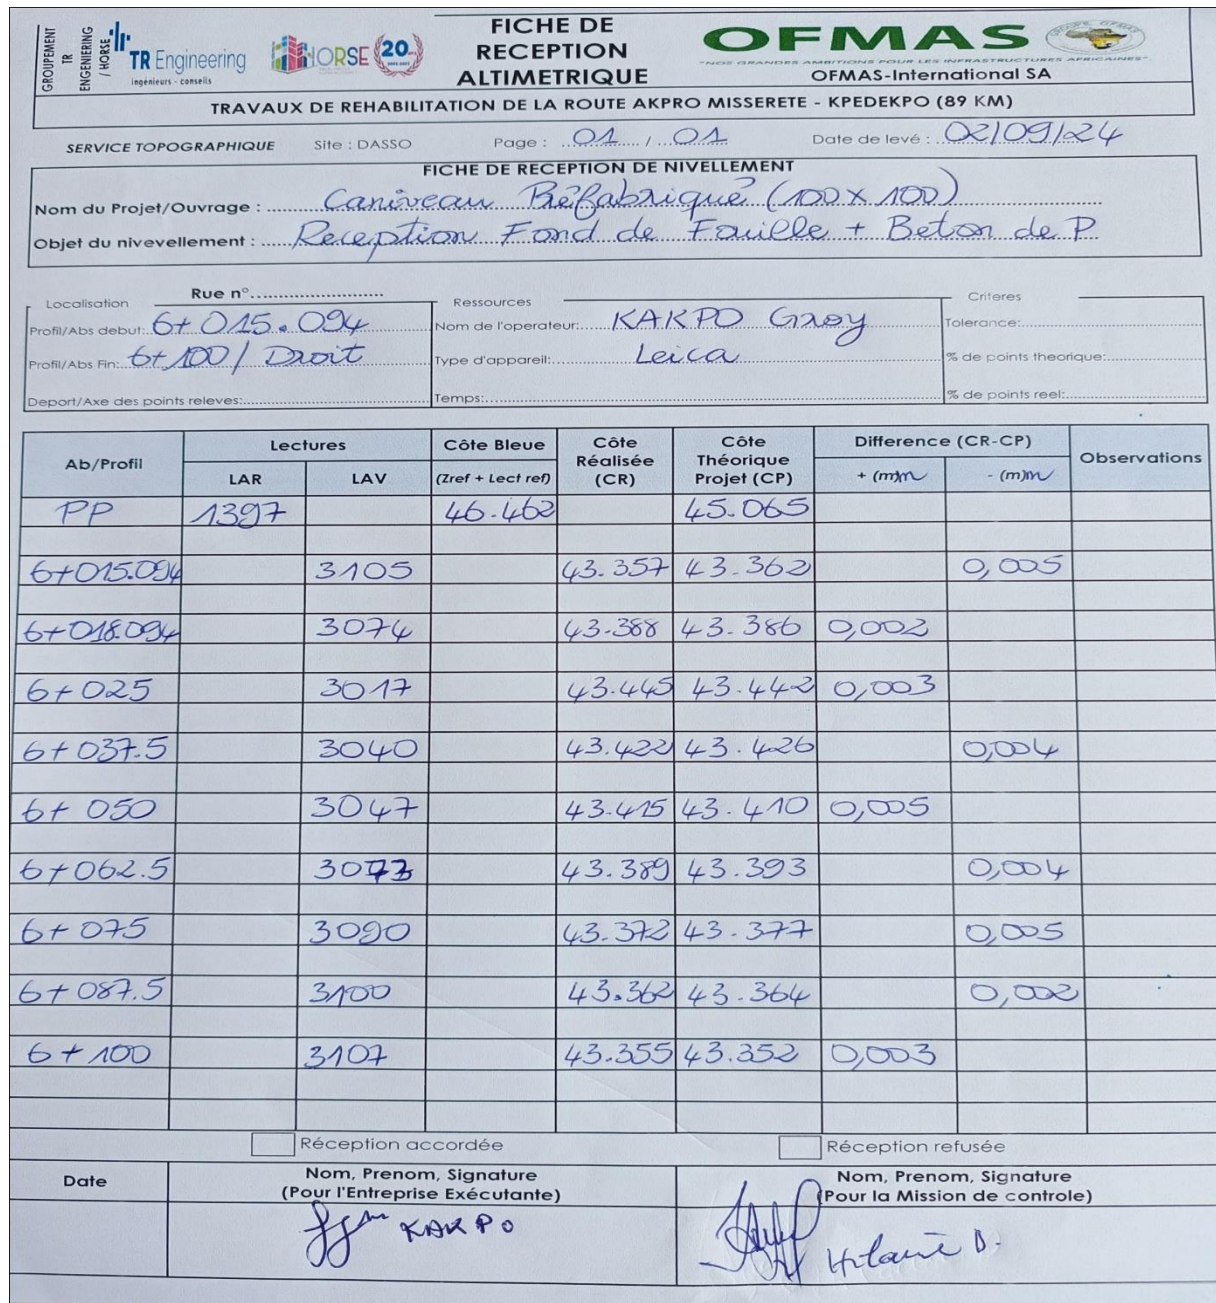 GROUPEMENT
TR
ENGENIERING
/ HORSE
TR Engineering
ingénieurs - conseils
HORSE 20
FICHE DE
RECEPTION
ALTIMETRIQUE
OFMAS
GROUPE OFMAS
"NOS GRANDES AMBITIONS POUR LES INFRASTRUCTURES AFRICAINES"
OFMAS-International SA
TRAVAUX DE REHABILITATION DE LA ROUTE AKPRO MISSERETE - KPEDEKPO (89 KM)
SERVICE TOPOGRAPHIQUE Site : DASSO Page : 01 / 01 Date de levé : 02/09/24
FICHE DE RECEPTION DE NIVELLEMENT
Nom du Projet/Ouvrage : Caniveau Préfabriqué (100 x 100)
Objet du nivevellement : Reception Fond de Fouille + Beton de P
Rue n°
Localisation
Profil/Abs debut: 6+015.094
Profil/Abs Fin: 6+100 / Droit
Deport/Axe des points releves:
Ressources
Nom de l'operateur: KAKPO Groy
Type d'appareil: Leica
Temps:
Criteres
Tolerance:
% de points theorique:
% de points reel:
Ab/Profil Lectures Côte Bleue Côte Réalisée (CR) Côte Théorique Projet (CP) Difference (CR-CP) Observations
LAR LAV (Zref + Lect ref) + (m)m - (m)m
PP 1397 46.462 45.065
6+015.094 3105 43.357 43.362 0,005
6+018.094 3074 43.388 43.386 0,002
6+025 3017 43.445 43.442 0,003
6+037.5 3040 43.422 43.426 0,004
6+050 3047 43.415 43.410 0,005
6+062.5 3073 43.389 43.393 0,004
6+075 3090 43.372 43.377 0,005
6+087.5 3100 43.362 43.364 0,002
6+100 3107 43.355 43.352 0,003
Réception accordée Réception refusée
Date
Nom, Prenom, Signature
(Pour l'Entreprise Exécutante)
KAKPO
Nom, Prenom, Signature
(Pour la Mission de controle)
Hilaire D.